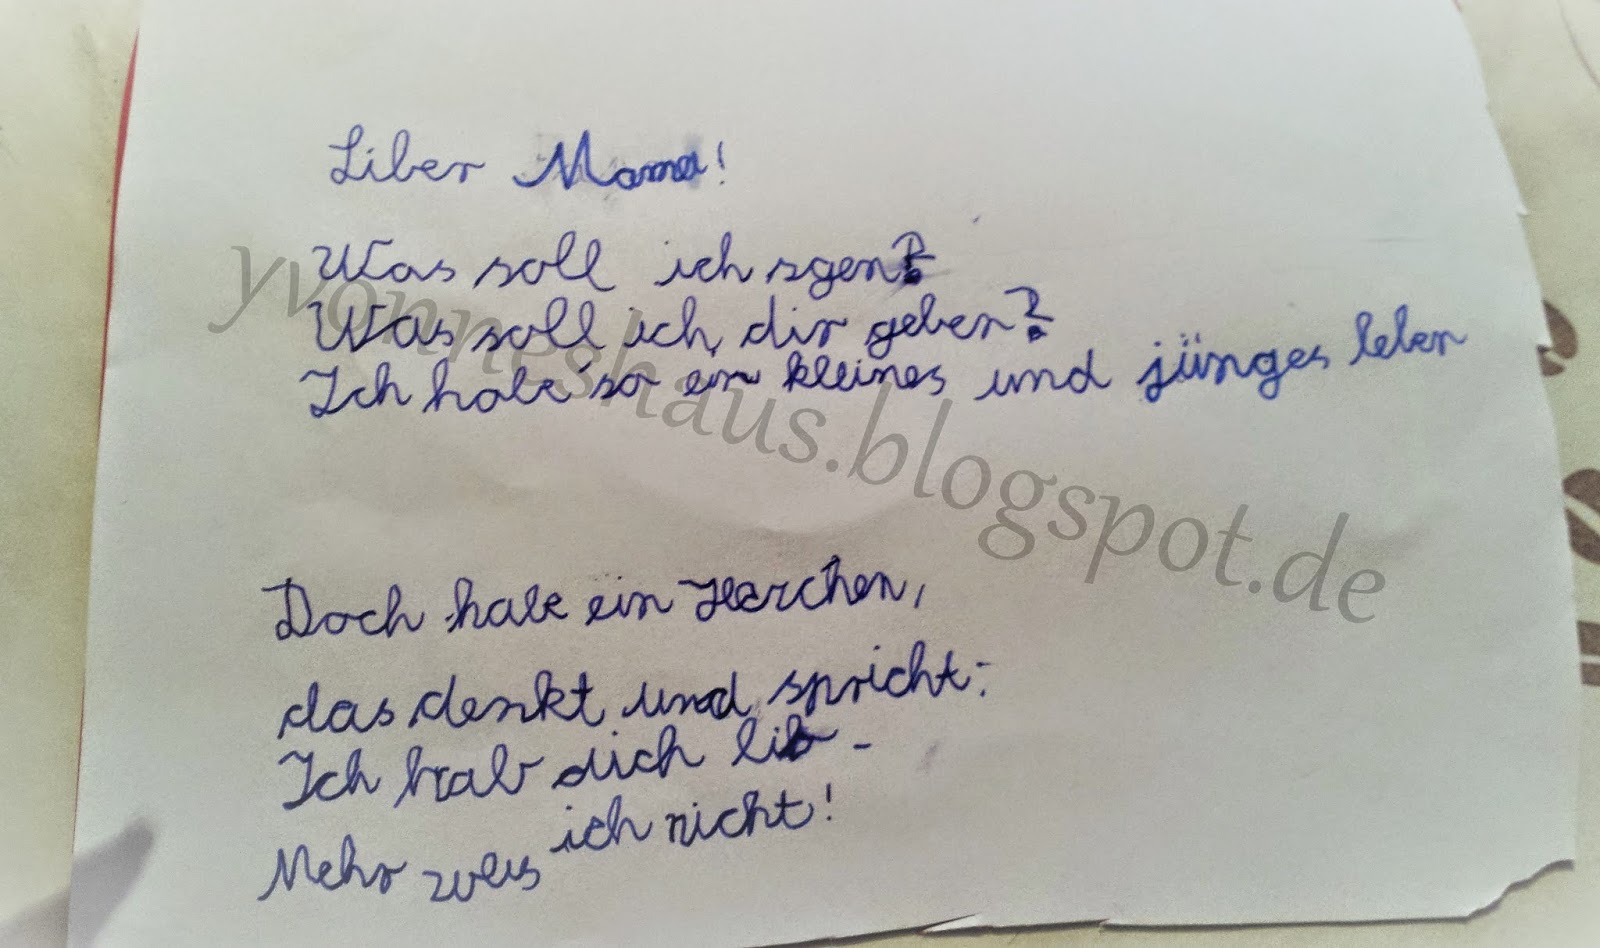 Liber Mama!
Was soll ich sgen?
Was soll ich dir geben?
Ich habe so ein kleines und jünges leben
Doch habe ein Herzchen,
das denkt und spricht:
Ich hab dich lib -
Mehr weis ich nicht!
yvonneshaus.blogspot.de